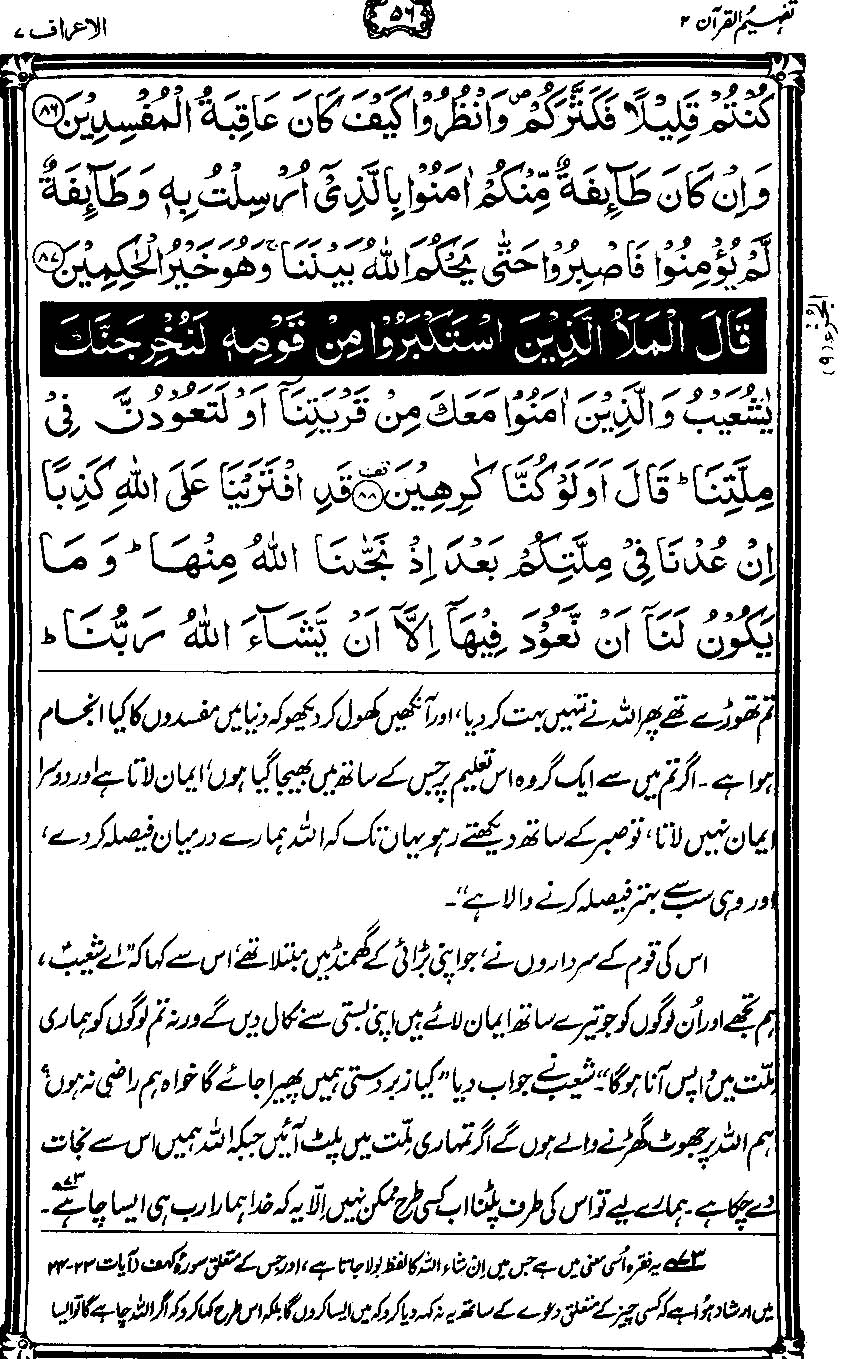 تفہیم القرآن ۲
۵۶
الاعراف ۷
كُنْتُمْ قَلِيْلًا فَكَثَّرَكُمْ ۪ وَانْظُرُوْا كَيْفَ كَانَ عَاقِبَةُ الْمُفْسِدِيْنَ ۸۶
وَاِنْ كَانَ طَآئِفَةٌ مِّنْكُمْ اٰمَنُوْا بِالَّذِيْۤ اُرْسِلْتُ بِهٖ وَطَآئِفَةٌ
لَّمْ يُؤْمِنُوْا فَاصْبِرُوْا حَتّٰى يَحْكُمَ اللّٰهُ بَيْنَنَا ۚ وَهُوَ خَيْرُ الْحٰكِمِيْنَ ۸۷
قَالَ الْمَلَاُ الَّذِيْنَ اسْتَكْبَرُوْا مِنْ قَوْمِهٖ لَنُخْرِجَنَّكَ
الجزء (۹)
يٰشُعَيْبُ وَالَّذِيْنَ اٰمَنُوْا مَعَكَ مِنْ قَرْيَتِنَاۤ اَوْ لَتَعُوْدُنَّ فِيْ
مِلَّتِنَا ؕ قَالَ اَوَلَوْ كُنَّا كٰرِهِيْنَ ۸۸ قَدِ افْتَرَيْنَا عَلَى اللّٰهِ كَذِبًا
اِنْ عُدْنَا فِيْ مِلَّتِكُمْ بَعْدَ اِذْ نَجّٰىنَا اللّٰهُ مِنْهَا ؕ وَمَا
يَكُوْنُ لَنَاۤ اَنْ نَّعُوْدَ فِيْهَاۤ اِلَّاۤ اَنْ يَّشَآءَ اللّٰهُ رَبُّنَا ؕ
تم تھوڑے تھے پھر اللہ نے تمہیں بہت کر دیا، اور آنکھیں کھول کر دیکھو کہ دنیا میں مفسدوں کا کیا انجام
ہوا ہے۔ اگر تم میں سے ایک گروہ اس تعلیم پر جس کے ساتھ میں بھیجا گیا ہوں، ایمان لاتا ہے اور دوسرا
ایمان نہیں لاتا، تو صبر کے ساتھ دیکھتے رہو یہاں تک کہ اللہ ہمارے درمیان فیصلہ کر دے،
اور وہی سب سے بہتر فیصلہ کرنے والا ہے“۔
اس کی قوم کے سرداروں نے، جو اپنی بڑائی کے گھمنڈ میں مبتلا تھے، اس سے کہا کہ ”اے شعیبؑ،
ہم تجھے اور اُن لوگوں کو جو تیرے ساتھ ایمان لائے ہیں اپنی بستی سے نکال دیں گے ورنہ تم لوگوں کو ہماری
مِلّت میں واپس آنا ہوگا“۔ شعیبؑ نے جواب دیا ”کیا زبردستی ہمیں پھیرا جائے گا خواہ ہم راضی نہ ہوں؟
ہم اللہ پر جھوٹ گھڑنے والے ہوں گے اگر تمہاری مِلّت میں پلٹ آئیں جبکہ اللہ ہمیں اس سے نجات
دے چکا ہے۔ ہمارے لیے تو اس کی طرف پلٹنا اب کسی طرح ممکن نہیں اِلّا یہ کہ خدا ہمارا رب ہی ایسا چاہے۷۳۔
۷۳ یہ فقرہ اُسی معنی میں ہے جس میں اِن شاء اللہ کا لفظ بولا جاتا ہے، اور جس کے متعلق سورۂ کہف (آیات ۲۳-۲۴
میں ارشاد ہُوا ہے کہ کسی چیز کے متعلق دعوے کے ساتھ یہ نہ کہہ دیا کرو کہ میں ایسا کروں گا بلکہ اس طرح کہا کرو کہ اگر اللہ چاہے گا تو ایسا